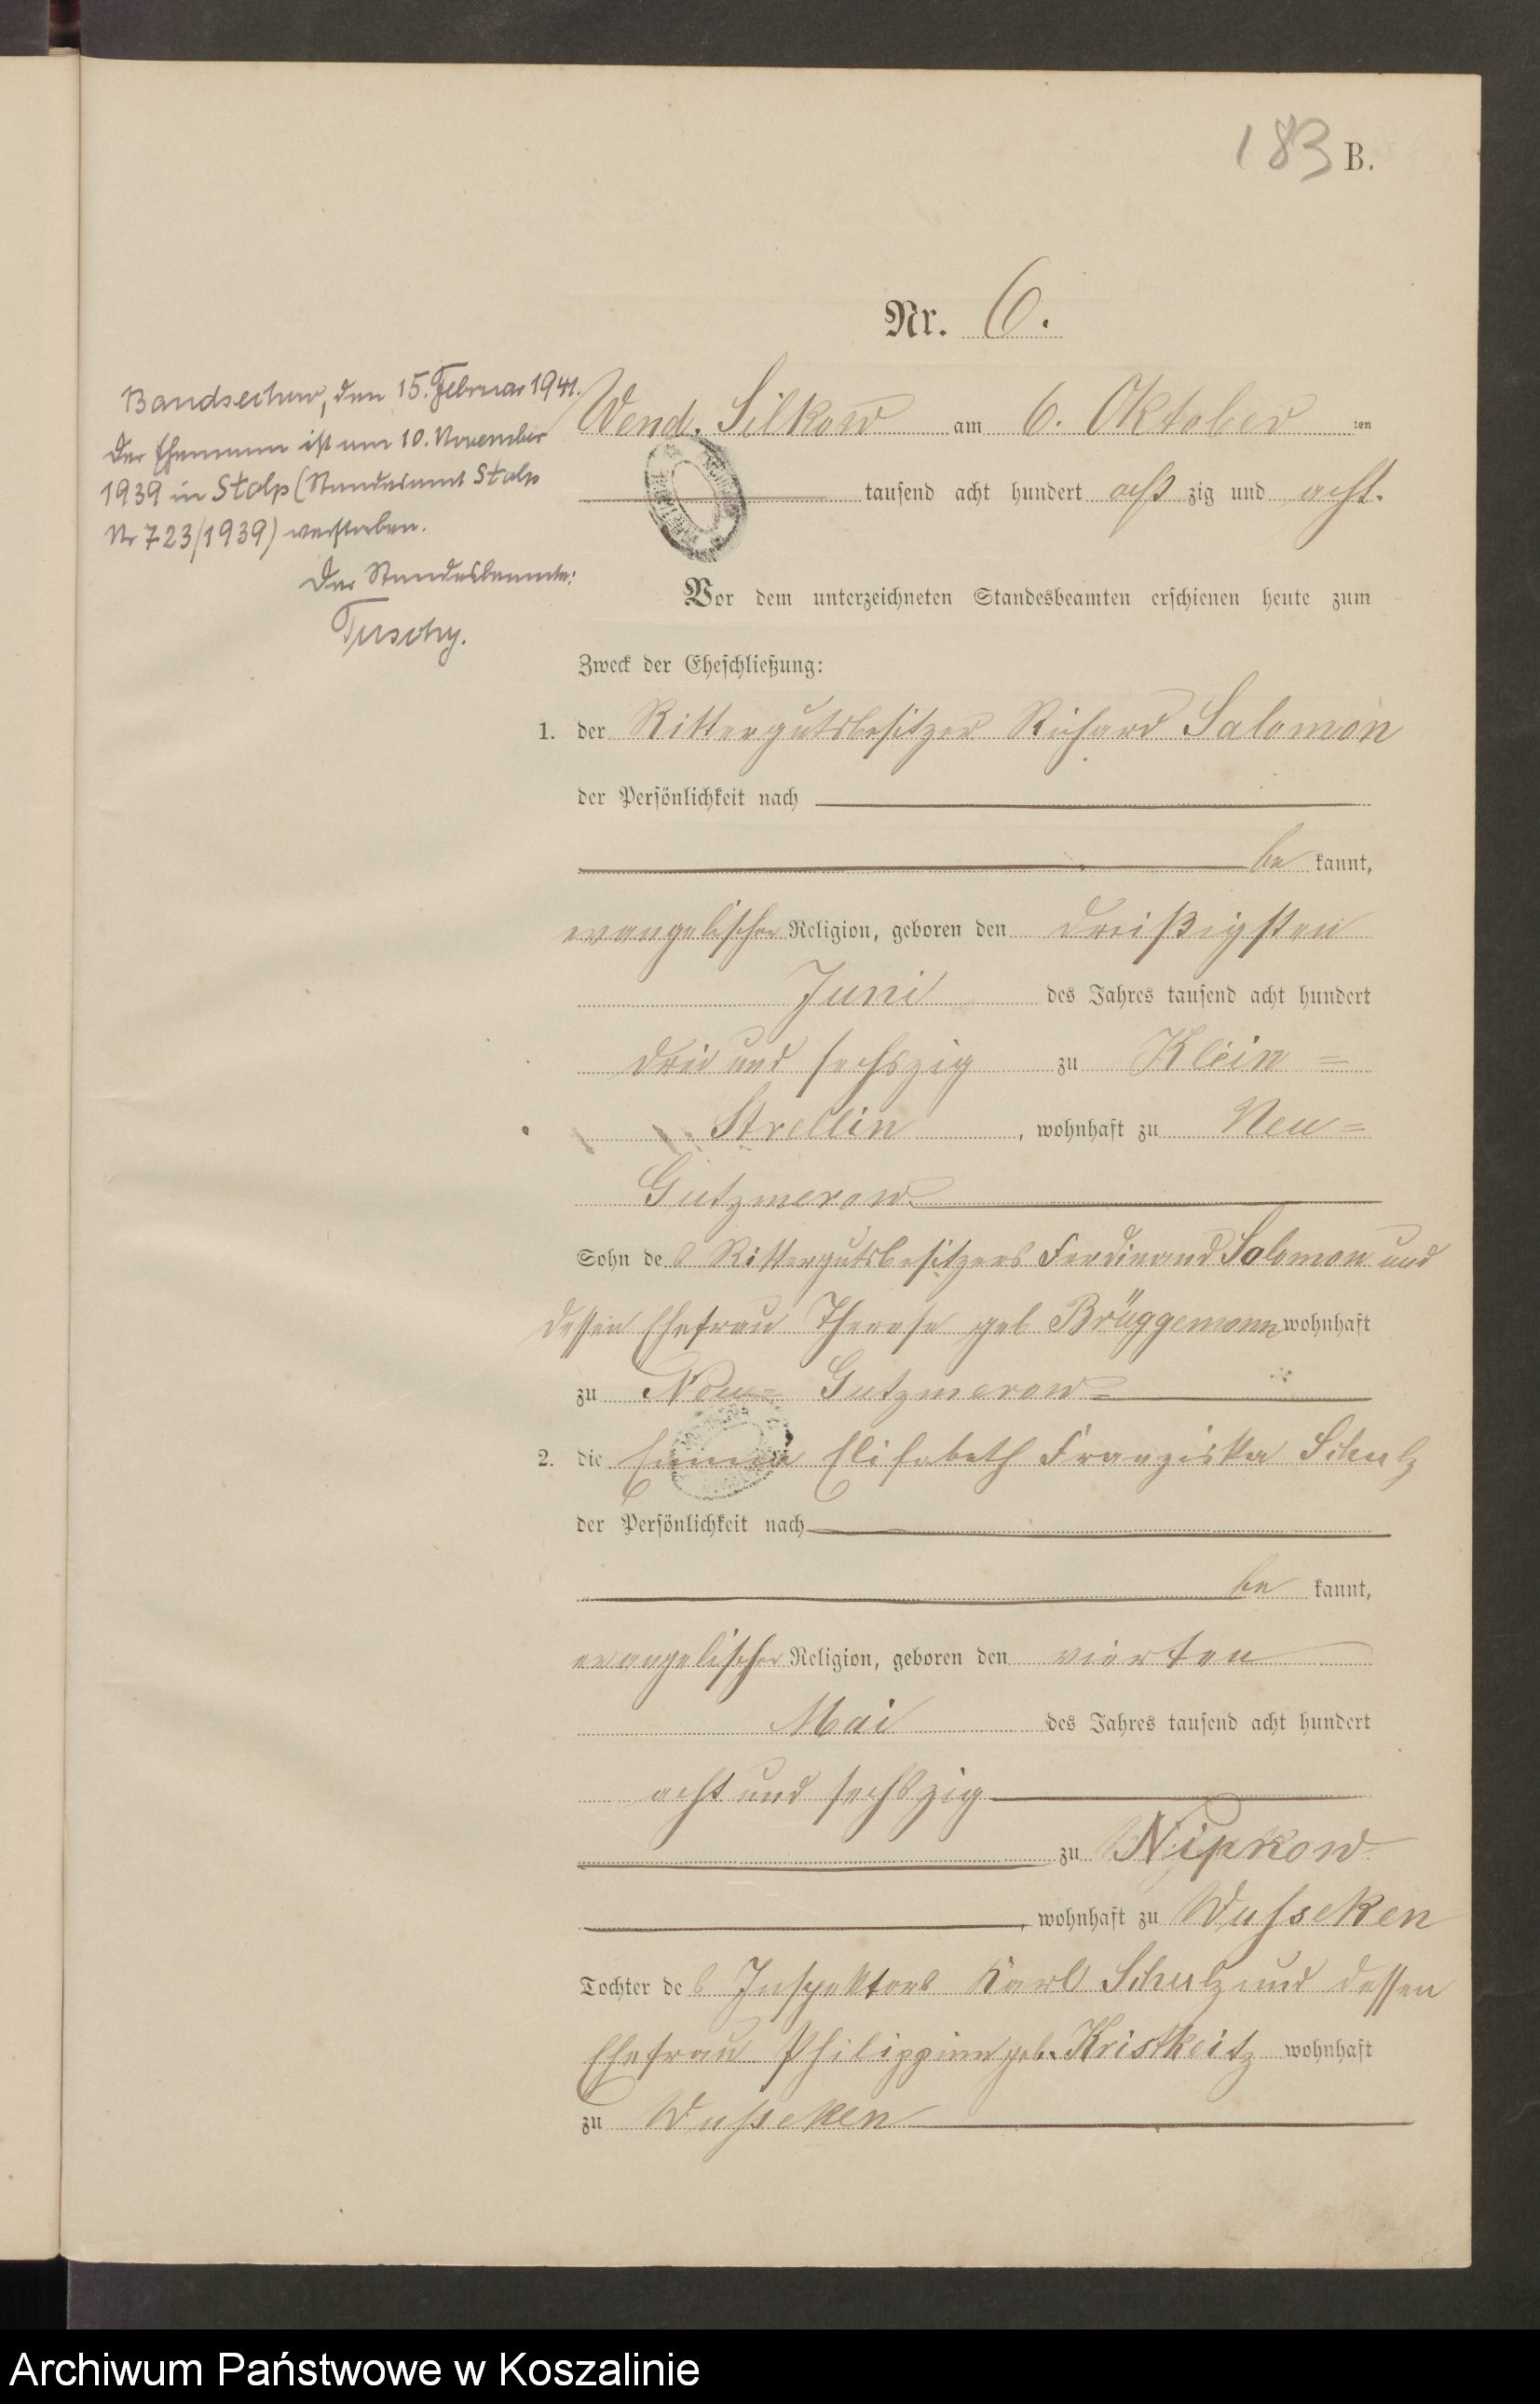 183 B.
Nr. 6.
Bandsechow, den 15. Februar 1941.
Der Ehemann ist am 10. November
1939 in Stolp (Standesamt Stolp
Nr 723/1939) verstorben.
Der Standesbeamte:
Wend. Silkow am 6. Oktober ten
tausend acht hundert acht zig und acht.
Vor dem unterzeichneten Standesbeamten erschienen heute zum
Zweck der Eheschließung:
1. der Rittergutsbesitzer Richard Salomon
der Persönlichkeit nach
be kannt,
evangelischer Religion, geboren den dreißigsten
Juni des Jahres tausend acht hundert
drei und sechszig zu Klein=
Strellin, wohnhaft zu Neu=
Gutzmerow
Sohn des Rittergutsbesitzers Ferdinand Salomon und
dessen Ehefrau Therese geb Brüggemann wohnhaft
zu Neu= Gutzmerow
2. die Emma Elisabeth Franziska Schulz
der Persönlichkeit nach
be kannt,
evangelischer Religion, geboren den vierten
Mai des Jahres tausend acht hundert
acht und sechszig
zu Nipkow
, wohnhaft zu Wusseken
Tochter des Inspektors Karl Schulz und dessen
Ehefrau Philippine geb. Kristkeitz wohnhaft
zu Wusseken
Archiwum Państwowe w Koszalinie